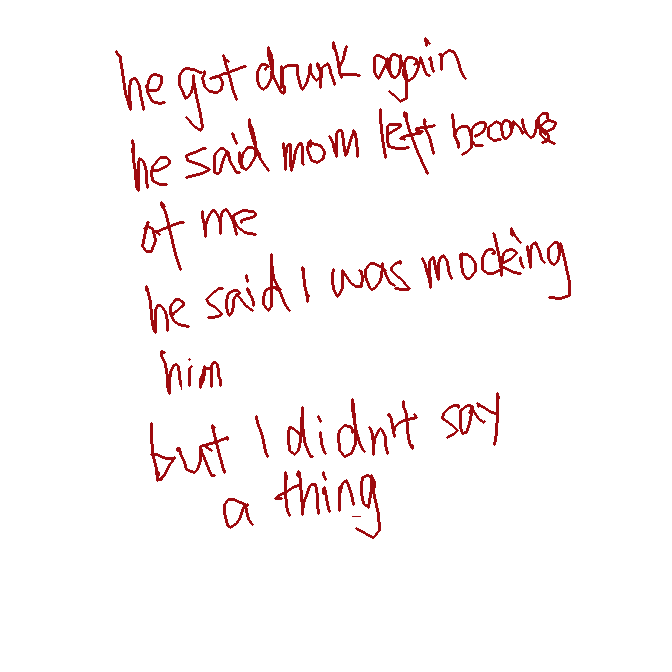 he got drunk again
he said mom left because
of me
he said I was mocking
him
but I didn't say
a thing